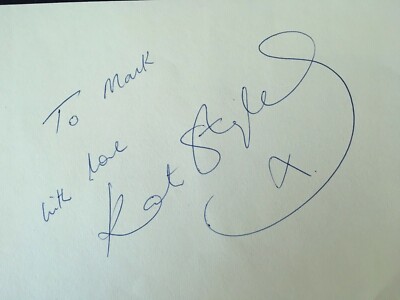 To Mark
with love
Kat Styles
X